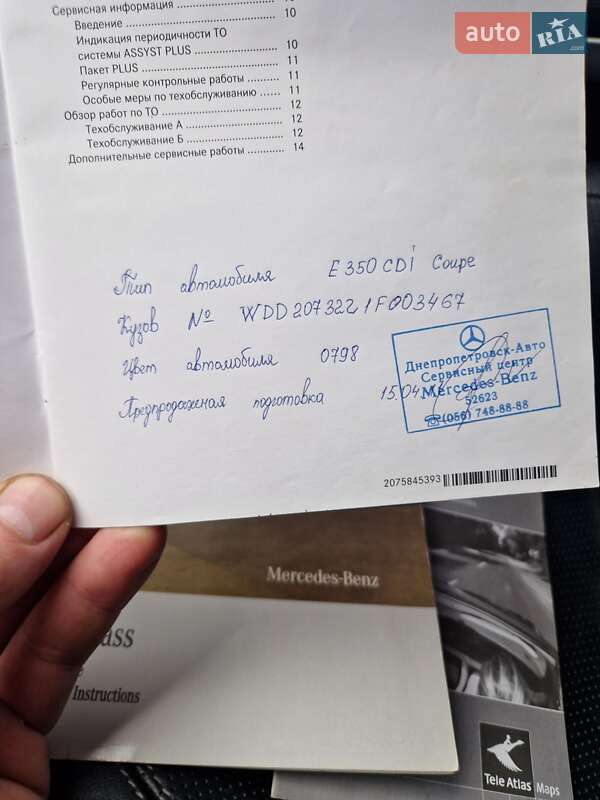 Сервисная информация
Введение 10
Индикация периодичности ТО
системы ASSYST PLUS 10
Пакет PLUS 11
Регулярные контрольные работы 11
Особые меры по техобслуживанию 11
Обзор работ по ТО 12
Техобслуживание А 12
Техобслуживание Б 12
Дополнительные сервисные работы 14
auto RIA .com
Тип автомобиля E 350 CDI Coupe
Кузов № WDD2073221F003467
Цвет автомобиля 0798
Предпродажная подготовка 15.04
Днепропетровск-Авто
Сервисный центр
Mercedes-Benz
52623
☎(056) 748-88-88
2075845393
Mercedes-Benz
ass
Instructions
Tele Atlas Maps